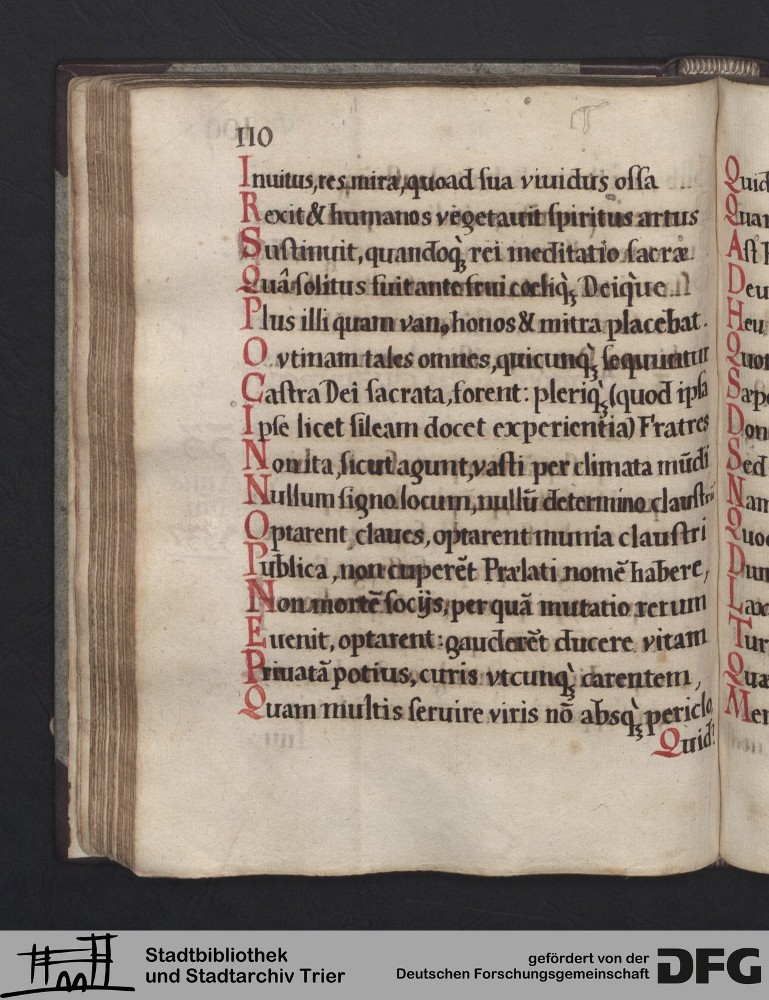 110
Inuitus, res mira, quoad sua viuidus ossa
Rexit & humanos vegetauit spiritus artus
Sustinuit, quandoq̀ꝫ rei meditatio sacræ
Quâ solitus fuit ante frui cœliq̀ꝫ Deiq̀ue
Plus illi quam van9 honos & mitra placebat.
O vtinam tales omnes, quicunq̀ꝫ sequuntur
Castra Dei sacrata, forent: pleriq̀ꝫ (quod ipsa
Ipse licet sileam docet experientia) Fratres
Non ita, sicut agunt, vasti per climata mūdi
Nullum signo locum, nullū determino claustrū
Optarent claues, optarent munia claustri
Publica, non cuperēt Prælati nomē habere,
Non mortē socijs, per quā mutatio rerum
Euenit, optarent: gauderēt ducere vitam
Priuatā potius, curis vtcunq̀ꝫ carentem,
Quam multis seruire viris nō absq̀ꝫ periclo
Quid?
Stadtbibliothek
und Stadtarchiv Trier
gefördert von der
Deutschen Forschungsgemeinschaft
DFG